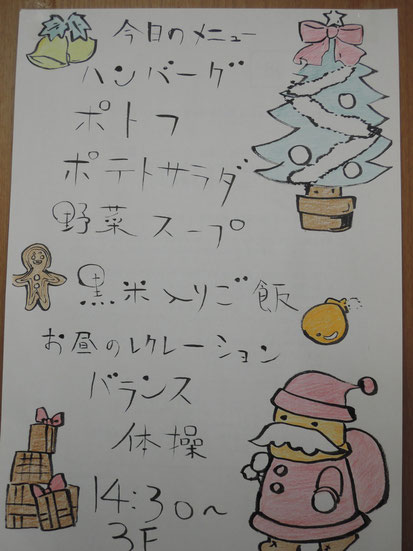 今日のメニュー
ハンバーグ
ポトフ
ポテトサラダ
野菜スープ
黒米入りご飯
お昼のレクレーション
バランス
体操
14:30〜
3F